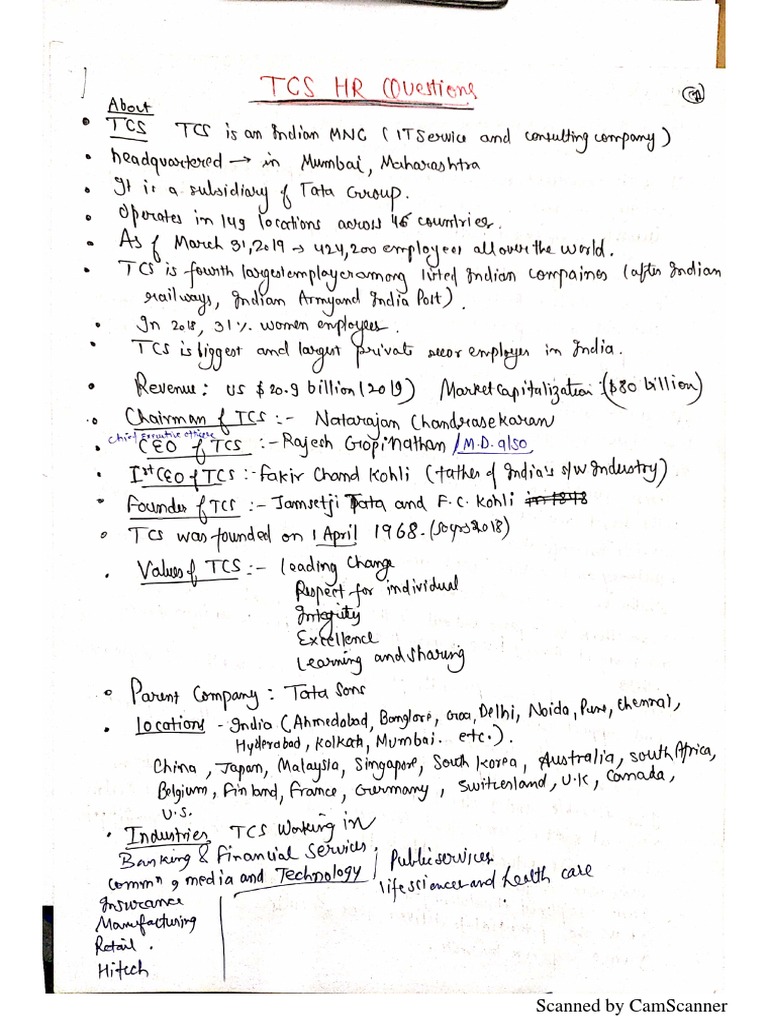 TCS HR Questions
About
• TCS TCS is an Indian MNC (IT Service and consulting company)
• headquartered → in Mumbai, Maharashtra
• It is a subsidiary of Tata Group.
• Operates in 149 locations across 46 countries.
• As of March 31, 2019 → 424,200 employees all over the world.
• TCS is fourth largest employer among listed Indian compaines (after Indian
railways, Indian Army and India Post).
• In 2018, 31% women employees.
• TCS is biggest and largest private secor employer in India.
• Revenue: US $20.9 billion (2019) Market Capitalization: ($80 billion)
• Chairman of TCS :- Natarajan Chandrasekaran
chief Executive officer
• CEO of TCS :- Rajesh Gopinathan / M.D. also
• Ist CEO of TCS :- Fakir Chand Kohli (father of India's s/w Industry)
• Founder of TCS :- Jamsetji Tata and F.C. Kohli
• TCS was founded on 1 April 1968. (50 yrs 2018)
• Values of TCS :- Leading Change
Respect for individual
Integrity
Excellence
Learning and sharing
• Parent Company : Tata Sons
• Locations - India (Ahmedabad, Banglore, Goa, Delhi, Noida, Pune, Chennai,
Hyderabad, Kolkata, Mumbai. etc.).
China, Japan, Malaysia, Singapore, South Korea, Australia, South Africa,
Belgium, Finland, France, Germany, Switzerland, U.K, Canada,
U.S.
• Industries TCS Working in
Banking & Financial Services, Public services
commⁿ, media and Technology life sciences and health care
Insurance
Manufacturing
Retail.
Hitech
Scanned by CamScanner